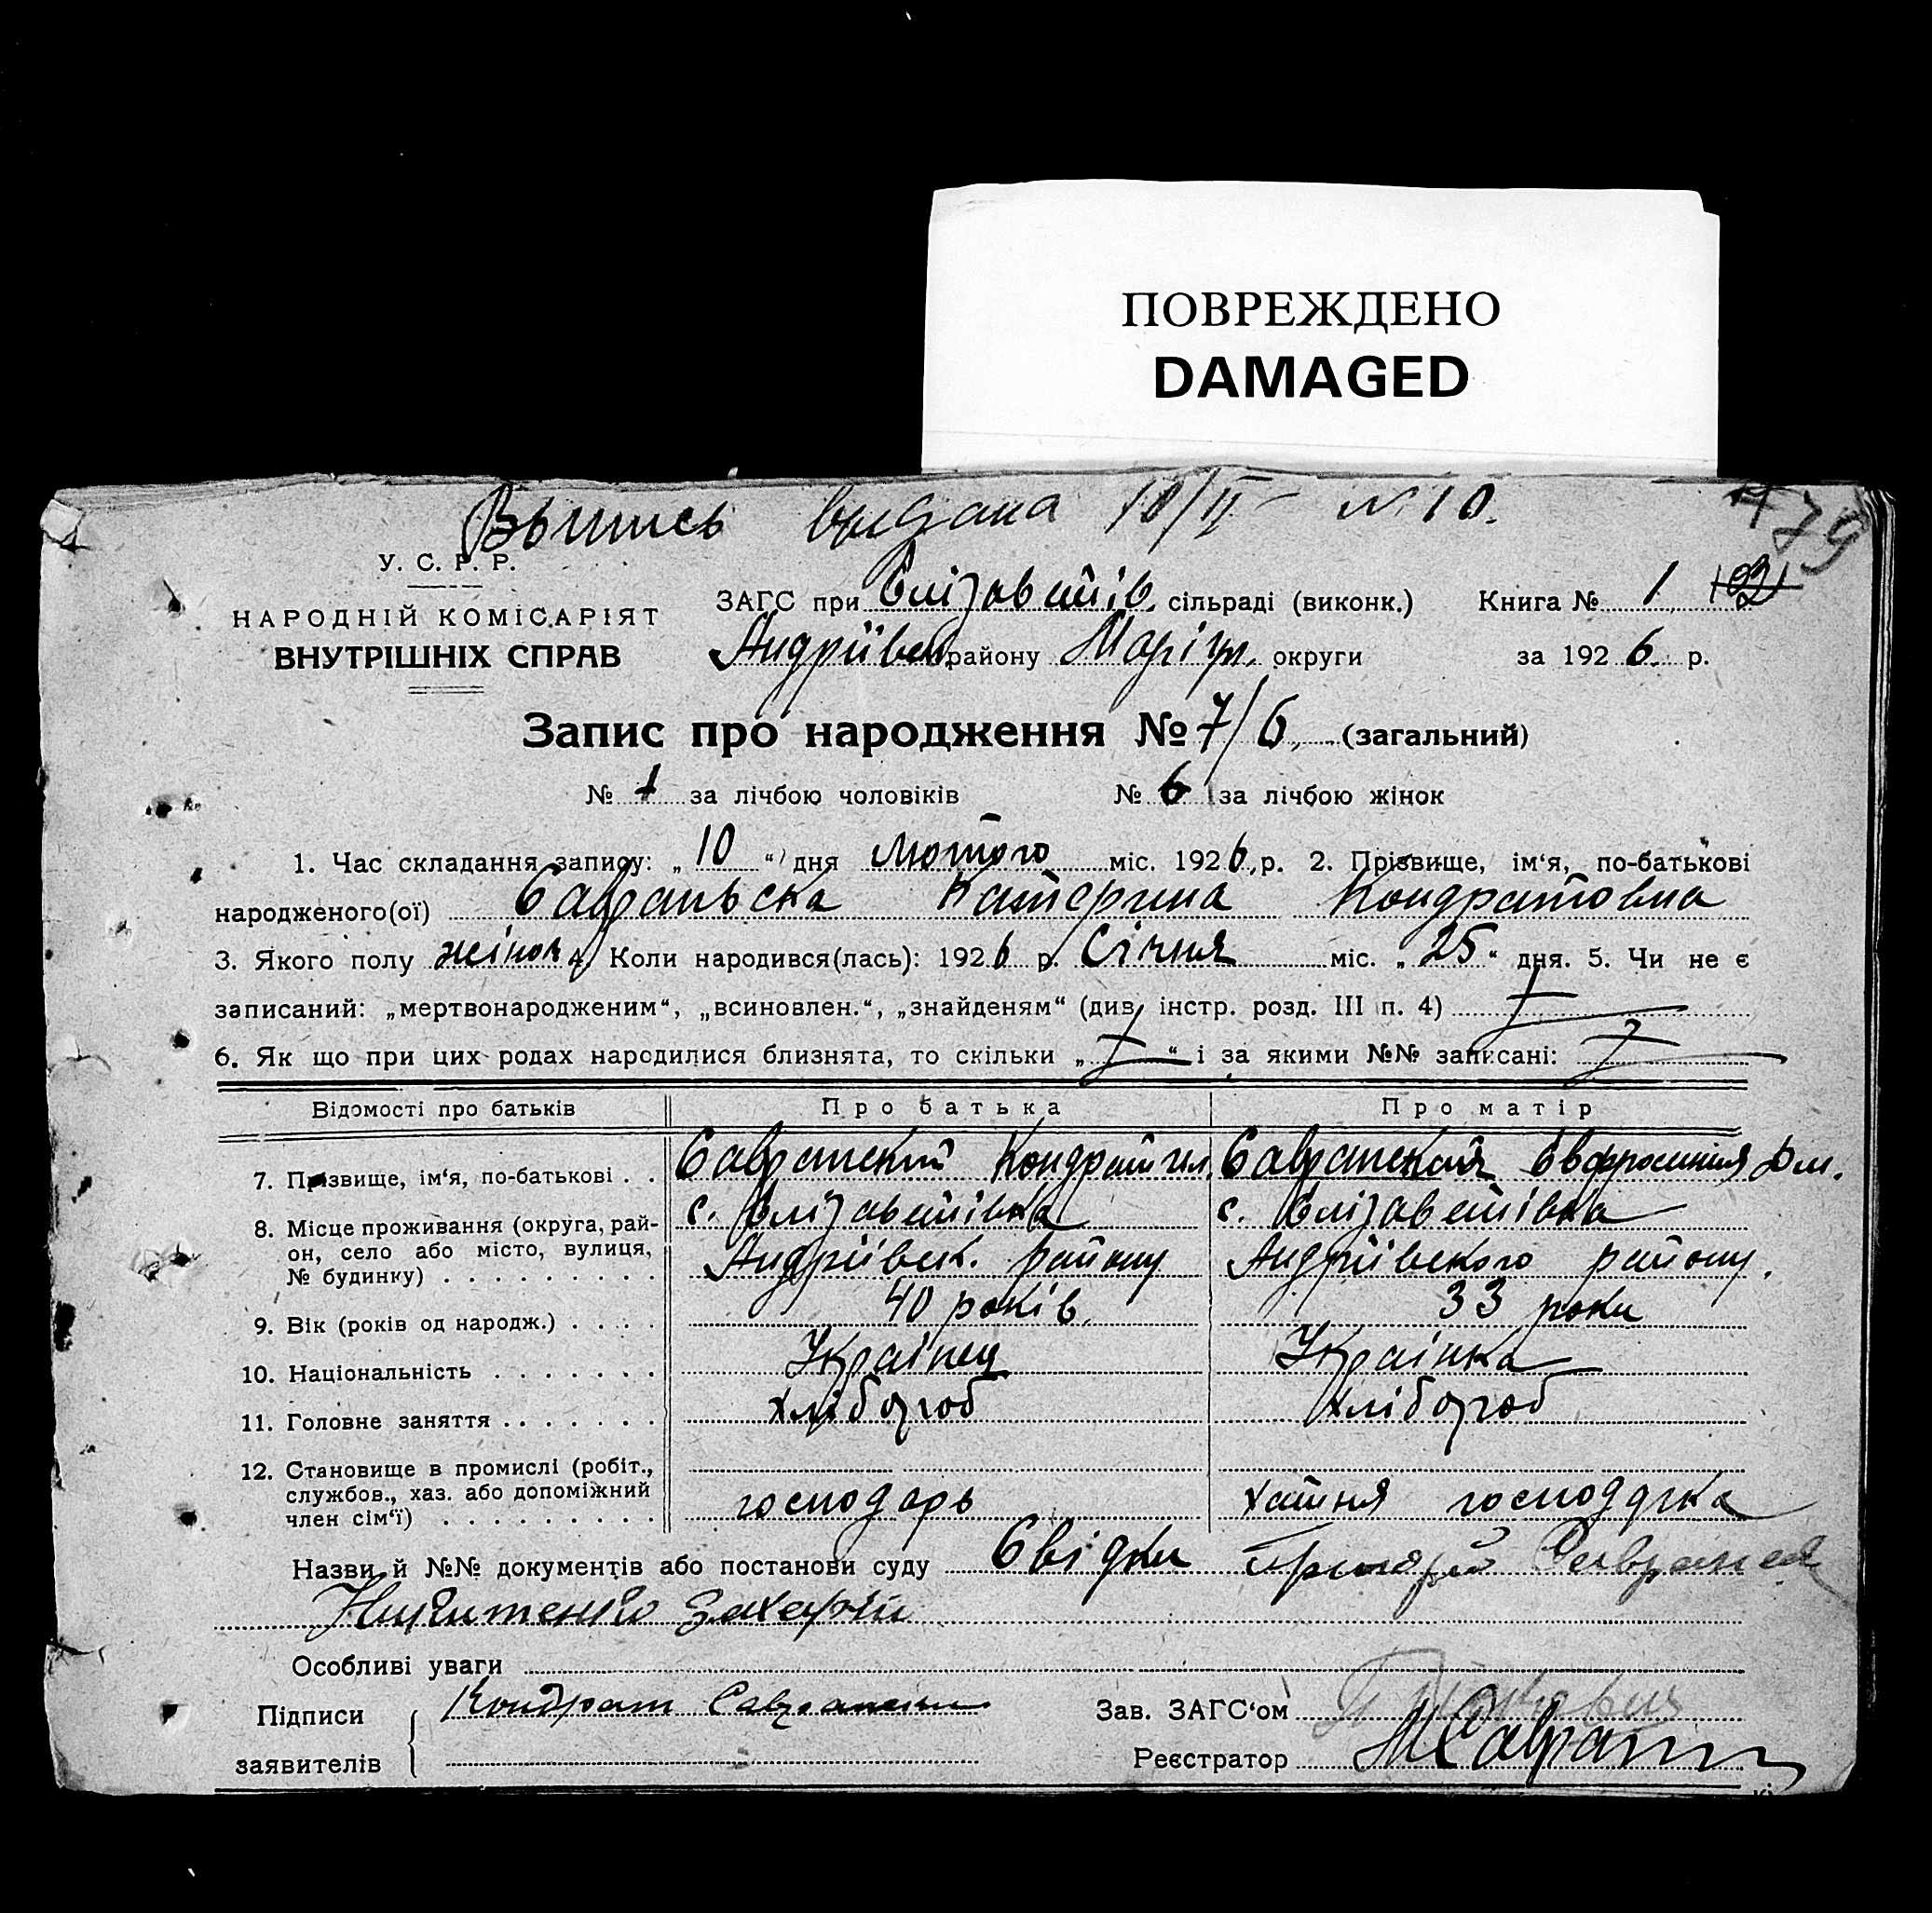 ПОВРЕЖДЕНО
DAMAGED
Выпись выдана 10/II N 10.
479
У. С. Р. Р.
НАРОДНІЙ КОМІСАРІЯТ
ВНУТРІШНІХ СПРАВ
ЗАГС при Єлізаветів. сільраді (виконк.) Книга № 1
Андріївськ району Маріуп. округи за 1926 р.
Запис про народження № 7/6 (загальний)
№ 1 за лічбою чоловіків № 6 за лічбою жінок
1. Час складання запису: „10“ дня Лютого міс. 1926 р. 2. Прізвище, ім‘я, по-батькові
народженого(ої) Савраньска Катерина Кондратовна
3. Якого полу жіноч 4. Коли народився(лась): 1926 р. Січня міс. „25“ дня. 5. Чи не є
записаний: „мертвонародженим“, „всиновлен.“, „знайденям“ (див. інстр. розд. III п. 4)
6. Як що при цих родах народилися близнята, то скільки „ “ і за якими №№ записані:
Відомості про батьків Про батька Про матір
7. Прізвище, ім‘я, по-батькові . . Савранский Кондрат Савранская Евфросиния Дм.
8. Місце проживання (округа, рай- с. Єлізаветівка с. Єлізаветівка
он, село або місто, вулиця,
№ будинку) . . . . . . . . . Андріівск. району Андріівского району.
9. Вік (років од народж.) . . . . 40 років. 33 роки
10. Національність . . . . . . . Украінец Украінка
11. Головне заняття . . . . . . . хлібороб хлібороб
12. Становище в промислі (робіт.,
службов., хаз. або допоміжний
член сім‘ї) . . . . . . . . . господарь хатня господарка
Назви й №№ документів або постанови суду Свідки Григорій Савранс
Никитенко Захарий
Особливі уваги
Підписи Кондрат Савранский Зав. ЗАГС‘ом
заявителів Реєстратор МСавран